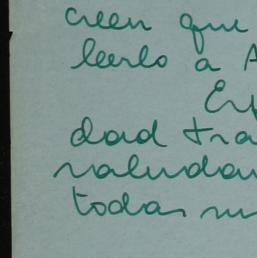 creen que
leerlo a A
dad tra
saludan
todas su